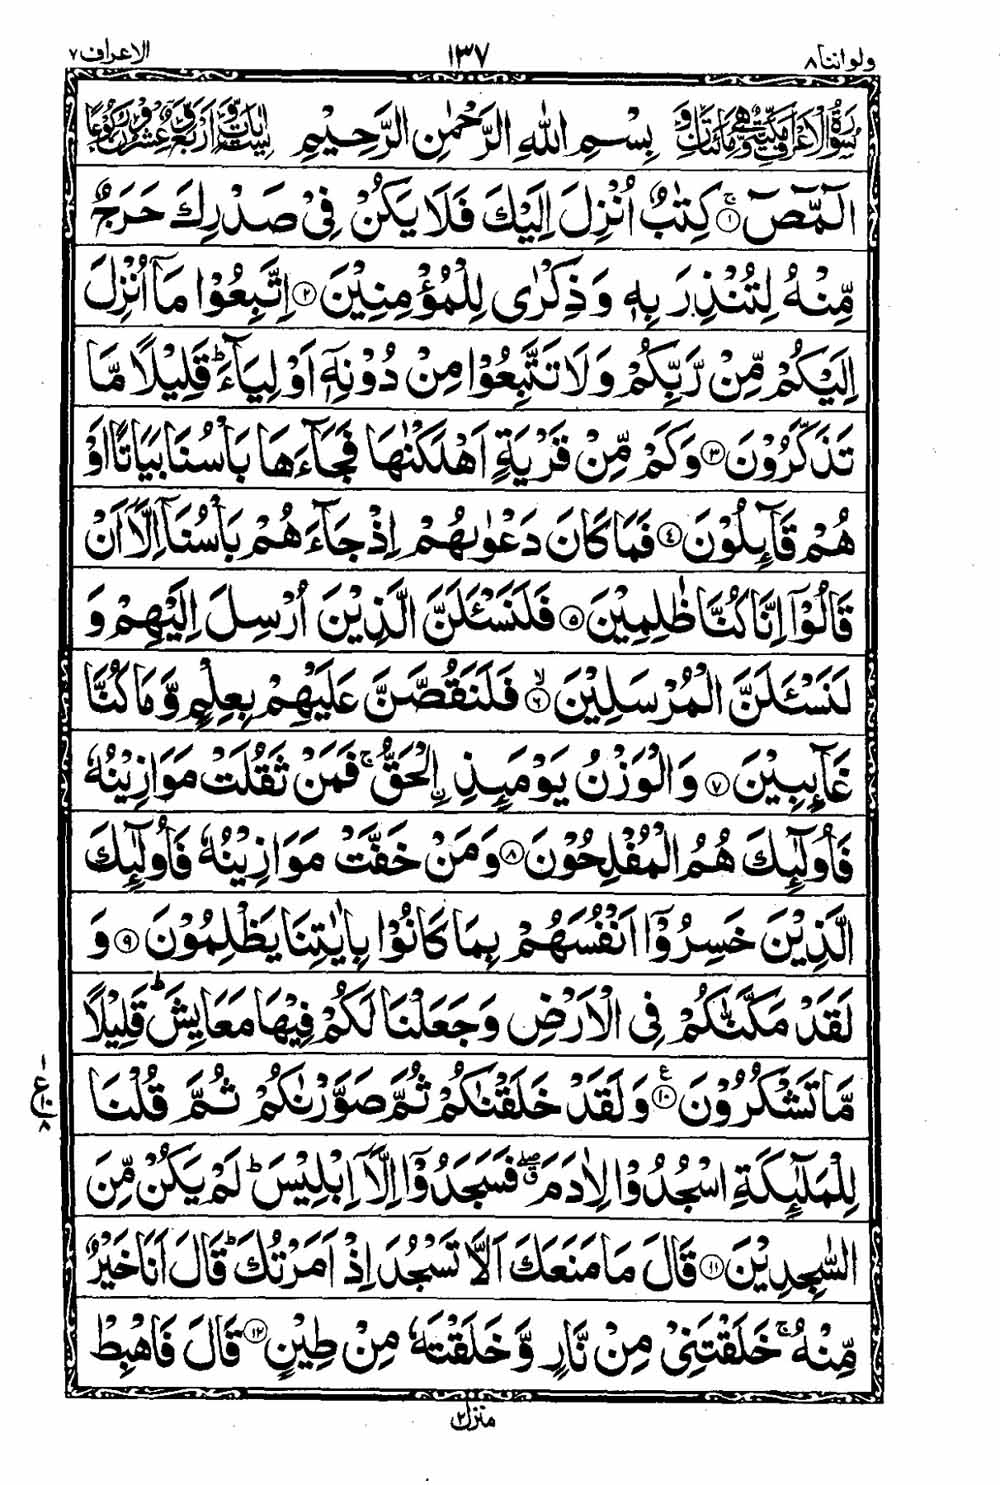 ولواننا ٨ ١٣٧ الاعراف ٧
سُوْرَةُ الْاَعْرَافِ مَكِّيَّةٌ وَّهِيَ مِائَتَانِ وَّ بِسْمِ اللهِ الرَّحْمٰنِ الرَّحِيْمِ سِتُّ اٰيَاتٍ وَّ اَرْبَعٌ وَّ عِشْرُوْنَ رُكُوْعًا
الٓمّٓصٓ ۚ۝١ كِتٰبٌ اُنْزِلَ اِلَيْكَ فَلَا يَكُنْ فِيْ صَدْرِكَ حَرَجٌ
مِّنْهُ لِتُنْذِرَ بِهٖ وَذِكْرٰى لِلْمُؤْمِنِيْنَ ۝٢ اِتَّبِعُوْا مَآ اُنْزِلَ
اِلَيْكُمْ مِّنْ رَّبِّكُمْ وَلَا تَتَّبِعُوْا مِنْ دُوْنِهٖٓ اَوْلِيَآءَ ؕ قَلِيْلًا مَّا
تَذَكَّرُوْنَ ۝٣ وَكَمْ مِّنْ قَرْيَةٍ اَهْلَكْنٰهَا فَجَآءَهَا بَاْسُنَا بَيَاتًا اَوْ
هُمْ قَآئِلُوْنَ ۝٤ فَمَا كَانَ دَعْوٰىهُمْ اِذْ جَآءَهُمْ بَاْسُنَآ اِلَّآ اَنْ
قَالُوْٓا اِنَّا كُنَّا ظٰلِمِيْنَ ۝٥ فَلَنَسْـَٔلَنَّ الَّذِيْنَ اُرْسِلَ اِلَيْهِمْ وَ
لَنَسْـَٔلَنَّ الْمُرْسَلِيْنَ ۙ۝٦ فَلَنَقُصَّنَّ عَلَيْهِمْ بِعِلْمٍ وَّمَا كُنَّا
غَآئِبِيْنَ ۝٧ وَالْوَزْنُ يَوْمَئِذِ ِۨالْحَقُّ ۚ فَمَنْ ثَقُلَتْ مَوَازِيْنُهٗ
فَاُولٰٓئِكَ هُمُ الْمُفْلِحُوْنَ ۝٨ وَمَنْ خَفَّتْ مَوَازِيْنُهٗ فَاُولٰٓئِكَ
الَّذِيْنَ خَسِرُوْٓا اَنْفُسَهُمْ بِمَا كَانُوْا بِاٰيٰتِنَا يَظْلِمُوْنَ ۝٩ وَ
لَقَدْ مَكَّنّٰكُمْ فِي الْاَرْضِ وَجَعَلْنَا لَكُمْ فِيْهَا مَعَايِشَ ؕ قَلِيْلًا
مَّا تَشْكُرُوْنَ ۝١٠ ع وَلَقَدْ خَلَقْنٰكُمْ ثُمَّ صَوَّرْنٰكُمْ ثُمَّ قُلْنَا
١ ع ١٠ ٨
لِلْمَلٰٓئِكَةِ اسْجُدُوْا لِاٰدَمَ ۖق فَسَجَدُوْٓا اِلَّآ اِبْلِيْسَ ؕ لَمْ يَكُنْ مِّنَ
السّٰجِدِيْنَ ۝١١ قَالَ مَا مَنَعَكَ اَلَّا تَسْجُدَ اِذْ اَمَرْتُكَ ؕ قَالَ اَنَا خَيْرٌ
مِّنْهُ ۚ خَلَقْتَنِيْ مِنْ نَّارٍ وَّخَلَقْتَهٗ مِنْ طِيْنٍ ۝١٢ قَالَ فَاهْبِطْ
منزل ٢